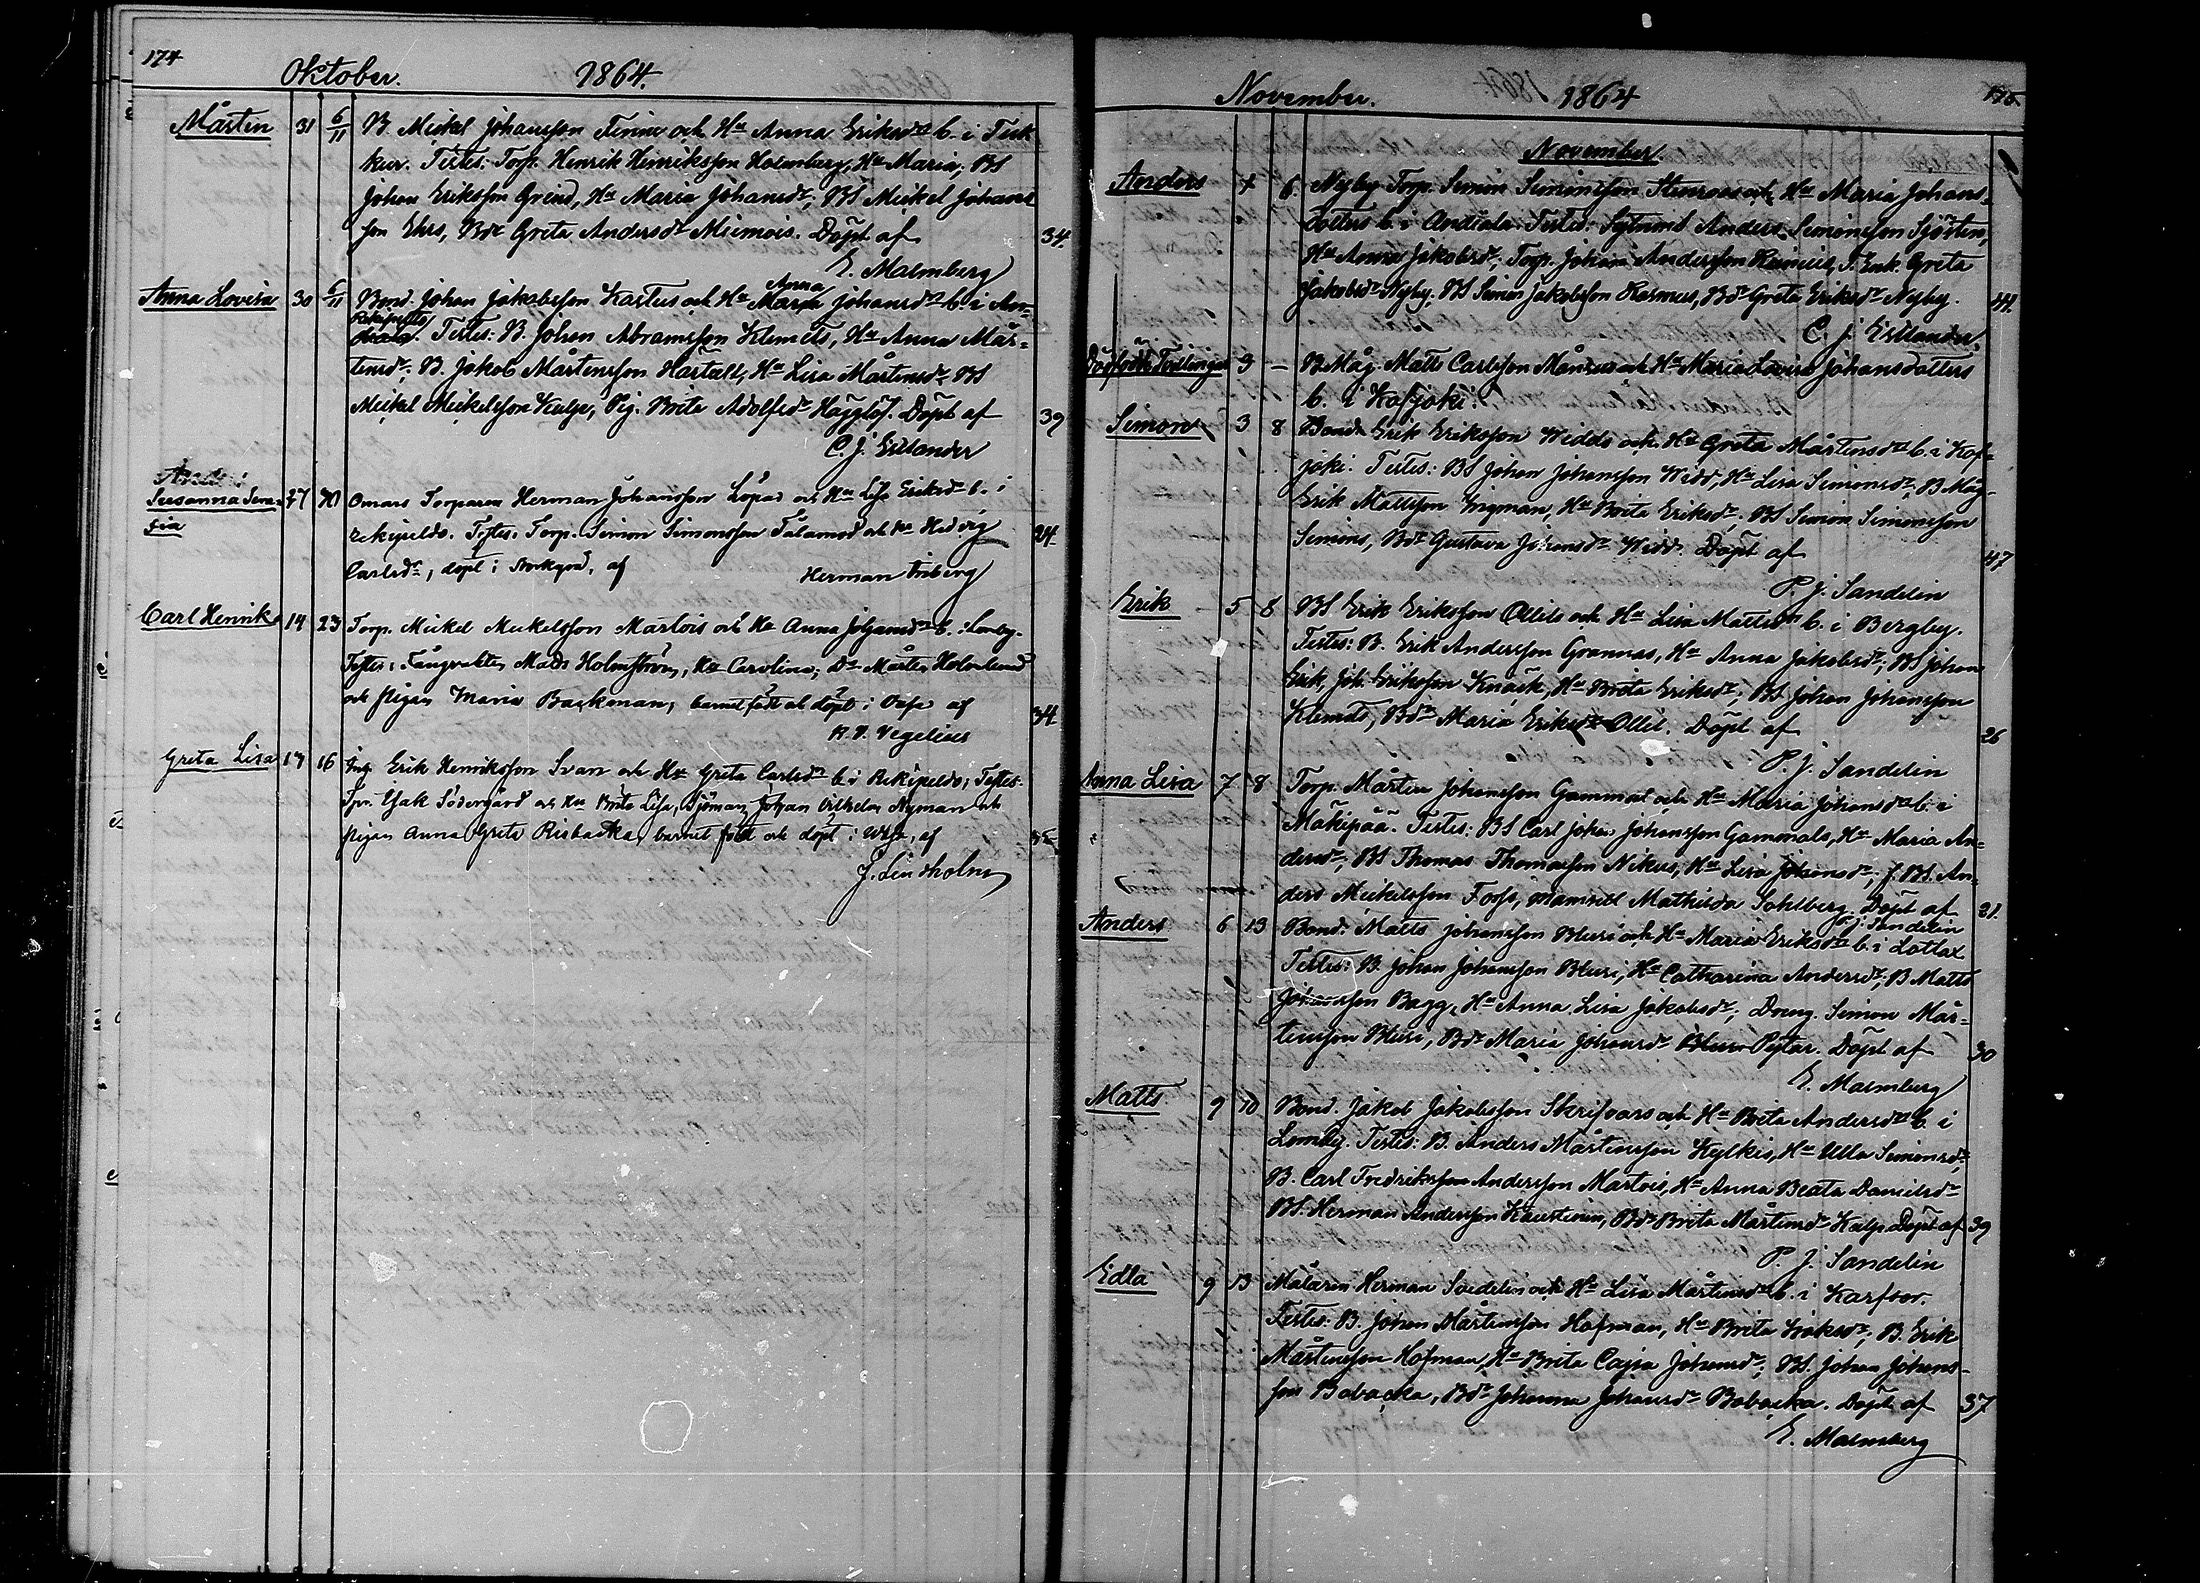 174
Oktober. 1864.
Mårten 31 6/11 B. Mickel Johansson Finne och Hu Anna Eriksdr b. i Tuk
kur. Testes: Torp. Henrik Henriksson Holmberg, Hu Maria; BS
Johan Eriksson Grind, Hu Maria Johansdr, BS Mickel Johans
son Ehrs, Bdr Greta Andersdr Miemois. Döpt af 34
E. Malmberg
Anna
Anna Lovisa 30 6/11 Bond. Johan Jakobsson Kastus och Hu Maria Johansdr b. i An-
Rekipeldo
diala. Testes: B. Johan Abramsson Klemets, Hu Anna Mår=
tensdr; B. Jakob Mårtensson Hartvall, Hu Lisa Mårtensdr BS
Mickel Mickelsson Kulp, Pig. Brita Adolfsdr Hägglöf. Döpt af 39
C. J. Estlander
Susanna Sera- 17 20 Omars Torparen Herman Johansson Löpas och Hu Lisa Eriksdr b. i
fia Rekipeldo. Testes: Torp. Simon Simonsson Talamod och Hu Hedvig 24
Carlsdr, döpt i Storkyrö, af Herman Friberg
Carl Henrik 14 23 Torp. Mickel Mickelsson Martois och Hu Anna Johansdr b. i Lomby.
Testes: Fångvakten Mats Holmström, Hu Carolina; Dr Mårten Holmlund
och pigan Maria Backman, barnet födt och döpt i Vasa af 34
K. V. Vegelius
Greta Lisa 17 16 Inh. Erik Henriksson Svan och Hu Greta Carlsdr b. i Rekipeldo; Testes:
Spr. Isak Södergård och Hu Brita Lisa, Sjöman Johan Vilhelm Nyman och
pigan Anna Greta Risbacka, barnet födt och döpt i Vasa, af 35
J. Lindholm
November. 1864 175
November.
Anders 4 6 Nyby Torp. Simon Simonsson Stenroos och Hu Maria Johans-
dotters b. i Andiala. Testes: Sytnmd Anders Simonsson Sjösten,
Hu Anna Jakobsdr; Torp. Johan Andersson Rasmus, T. Enk. Greta
Jakobsdr Nyby, BS Simon Jakobsson Rasmus, Bdr Greta Eriksdr Nyby. 44
C. J. Estlander.
Dödfödde Tvillingar 3 – B. Måg. Matts Carlsson Månsus och Hu Maria Lovisa Johansdotters
b. i Kofjoki.
Simon 3 8 Bond. Erik Eriksson Widds och Hu Greta Mårtensdr b. i Kof-
joki. Testes: BS Johan Johansson Widd, Hu Lisa Simonsdr; B Måg
Erik Mattsson Engman, Hu Brita Eriksdr. BS Simon Simonsson
Simons, Bdr Gustava Johansdr Widd. Döpt af 47
P. J. Sandelin
Erik 5 8 BS Erik Eriksson Ollils och Hu Lisa Mattsdr b. i Bergby.
Testes: B. Erik Andersson Grannas, Hu Anna Jakobsdr; BS Johan
Erik, Joh. Eriksson Knaik, Hu Brita Eriksdr; BS Johan Johansson
Klemets, Bdr Maria Eriksdr Ollil. Döpt af 26
P. J. Sandelin
Anna Lisa 7 8 Torp. Mårten Johansson Gammal och Hu Maria Johansdr b. i
Mäkipää. Testes: BS Carl Johan Johansson Gammals, Hu Maria An-
dersdr; BS Thomas Thomasson Nikus, Hu Lisa Johansdr; f. BS. An-
ders Mickelsson Forss, mamsell Mathilda Sohlberg. Döpt af 21
P. J. Sandelin
Anders 6 13 Bond. Matts Johansson Bluri och Hu Maria Eriksdr b. i Lotlax
Testes: B. Johan Johansson Bluri, Hu Catharina Andersdr; B Matts
Johansson Bagg, Hu Anna Lisa Jakobsdr; Dreng. Simon Mår-
tensson Bluri, Bdr Maria Johansdr Bluri Pejtar. Döpt af 30
E. Malmberg
Matts. 9 10 Bond. Jakob Jakobsson Skrifvars och Hu Brita Andersdr b. i
Lomby. Testes: B. Anders Mårtensson Kylkis, Hu Ulla Simonsdr;
B. Carl Fredriksson Andersson Martois, Hu Anna Beata Danielsdr
BS. Herman Andersson Kaustinen, Bdr Brita Mårtensdr Kulp. Döpt af 39
P. J. Sandelin
Edla 9 13 Målaren Herman Svedelin och Hu Lisa Mårtensdr b. i Karfsor.
Testes: B. Johan Mårtensson Hofman, Hu Brita Isaksdr; B. Erik
Mårtensson Hofman, Hu Brita Cajsa Johansdr; BS. Johan Johans-
son Bobacka, Bdr Johanna Johansdr Bobacka. Döpt af 37
E. Malmberg